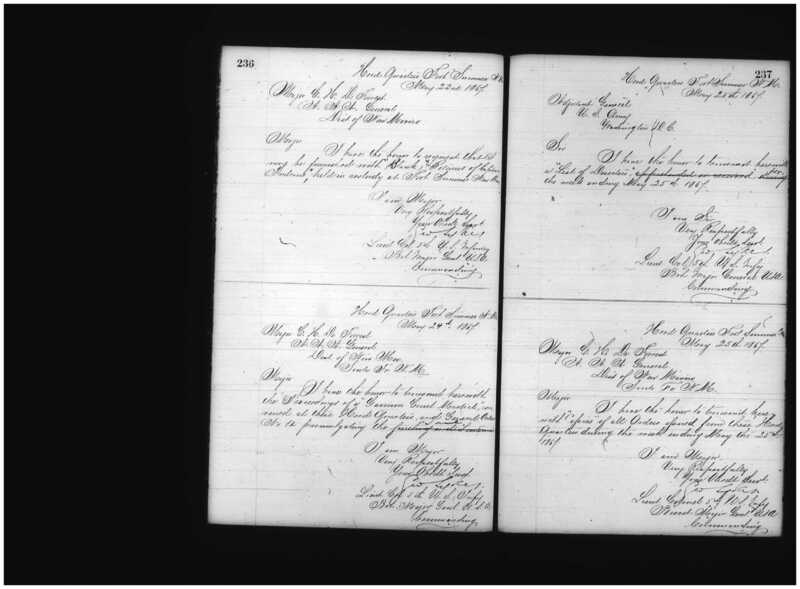 236
Head Quarters Fort Sumner N.M.
May 22nd 1867.
Major C. H. De Forrest
A. A. A. General
Dist of New Mexico
Major
I have the honor to request that I
may be furnished with "Blank" "Returns of
held in custody at Fort Sumner New Mex
I am Major
Very Respectfully
Your Obedt Servt
Lieut Col 5th U. S. Infantry
Bvt Major Genl U.S.A.
Commanding
Head Quarters Fort Sumner N. M.
May 24th 1867.
Major C. H. De Forrest
A. A. A. General
Dist of New Mex
Santa Fe N.M.
Major
I have the honor to transmit herewith
the Proceedings of a Garrison Court Martial, con
vened at these Head Quarters, and General Order
No 12 promulgating the
I am Major
Very Respectfully
Your Obedt Servt
Lieut Col 5th U. S. Infy
Bvt. Major Genl U. S. A.
Commanding
237
Head Quarters Fort Sumner N. M.
May 25th 1867.
Adjutant General
U. S. Army
Washington D.C.
Sir
I have the honor to transmit herewith
a "List of Deserters", apprehended or for
the week ending May 25th 1867.
I am Sir
Very Respectfully
Your Obedt Servt
Lieut Col 5th U. S. Infy
Bvt Major General U.S.A.
Commanding
Head Quarters Fort Sumner
May 25th 1867.
Major C. H. De Forrest
A. A. A. General
Dist of New Mexico
Santa Fe N.M.
Major
I have the honor to transmit here
with copies of all Orders issued from these Head
Quarters during the week ending May the 25th
1867
I am Major
Very Respectfully
Your Obedt Servt
Lieut Colonel 5th U.S. Infy
Brevet Major Genl U.S.A.
Commanding